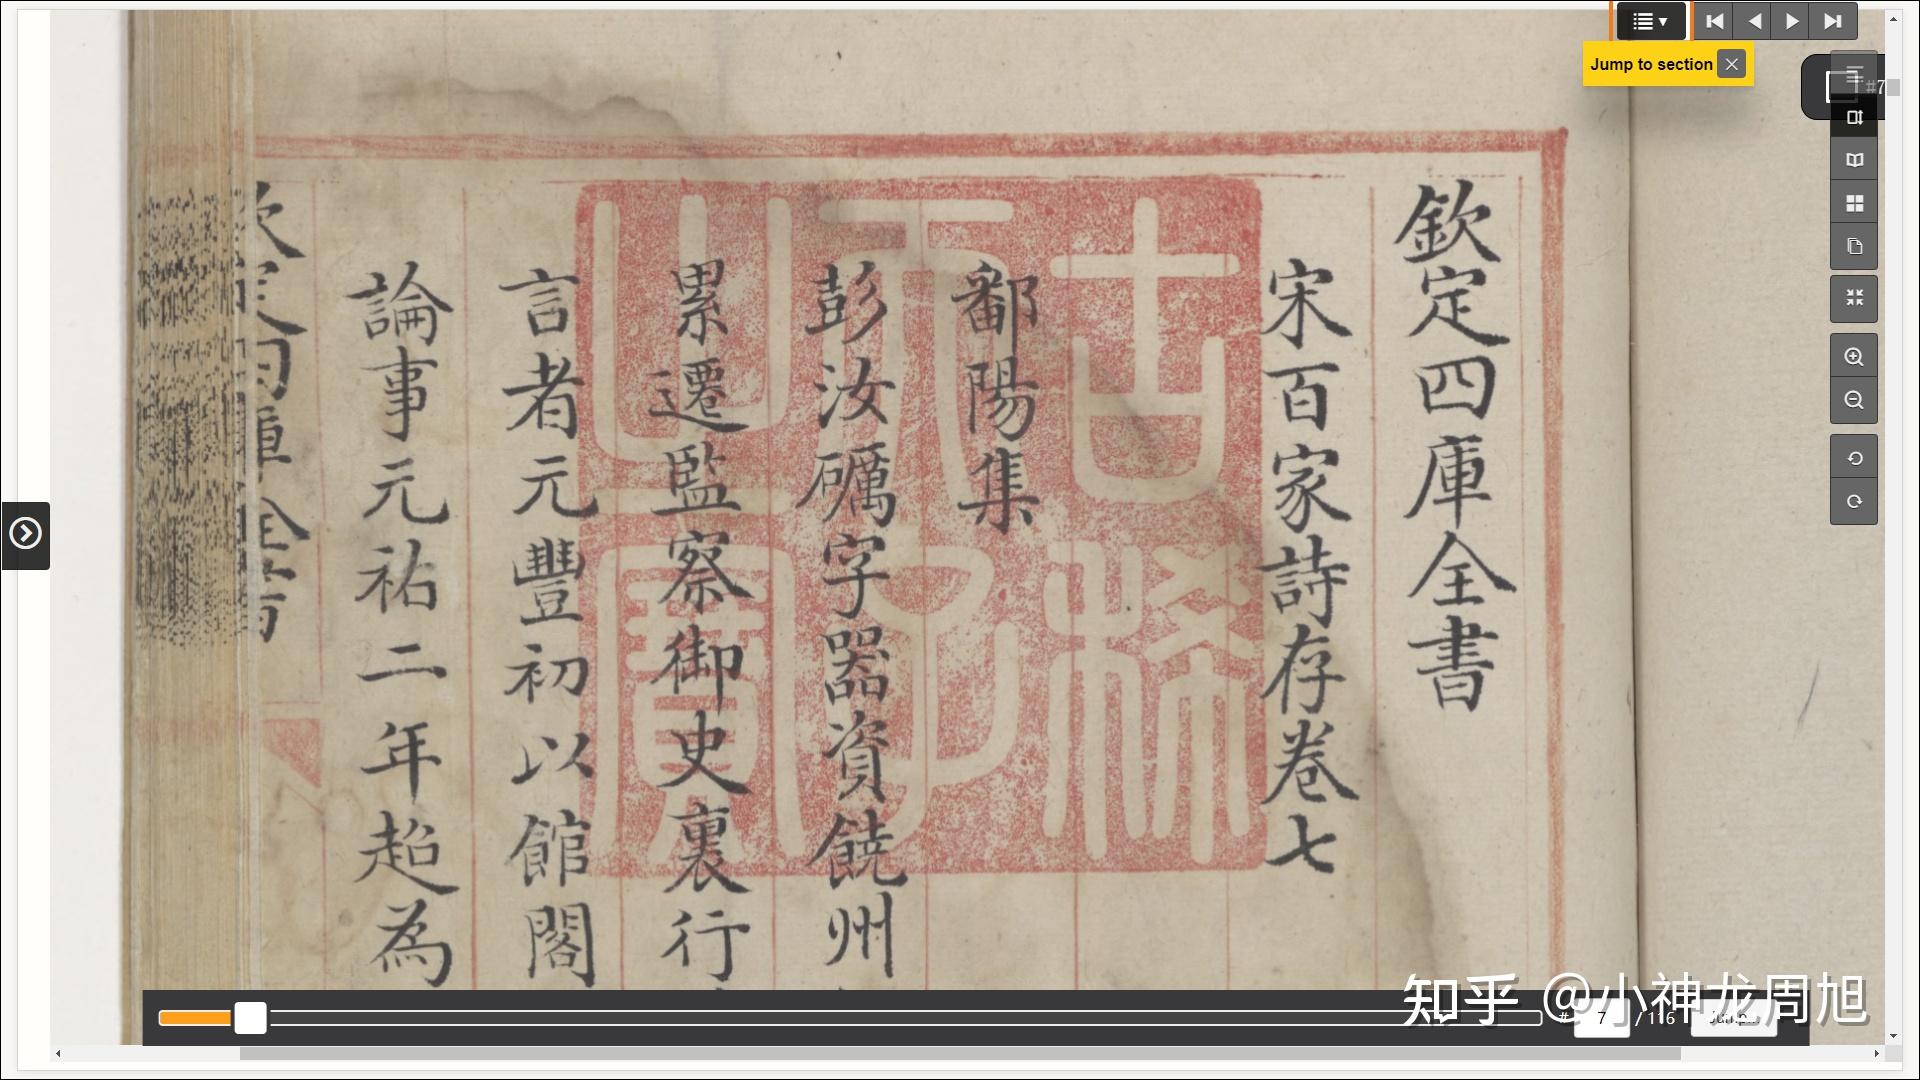 欽定四庫全書
宋百家詩存卷七
鄱陽集
彭汝礪字器資饒州
累遷監察御史裏行
言者元豐初以館閣
論事元祐二年起為
古稀天子之寶
Jump to section
#7
# 7 / 116
知乎 @小神龙周旭